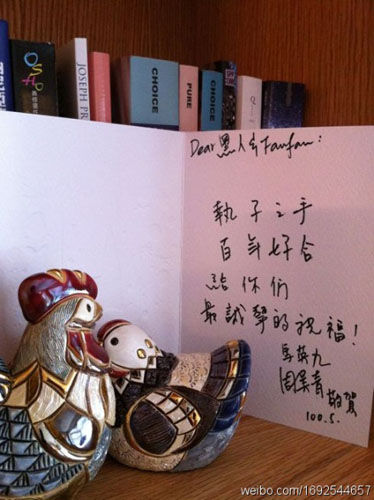 OSHO
JOSEPH PR
CHOICE
PURE
CHOICE
Dear 黑人&Fanfan:
執子之手
百年好合
給你們
最誠摯的祝福!
馬英九
周美青
敬賀
100.5.
weibo.com/1692544657